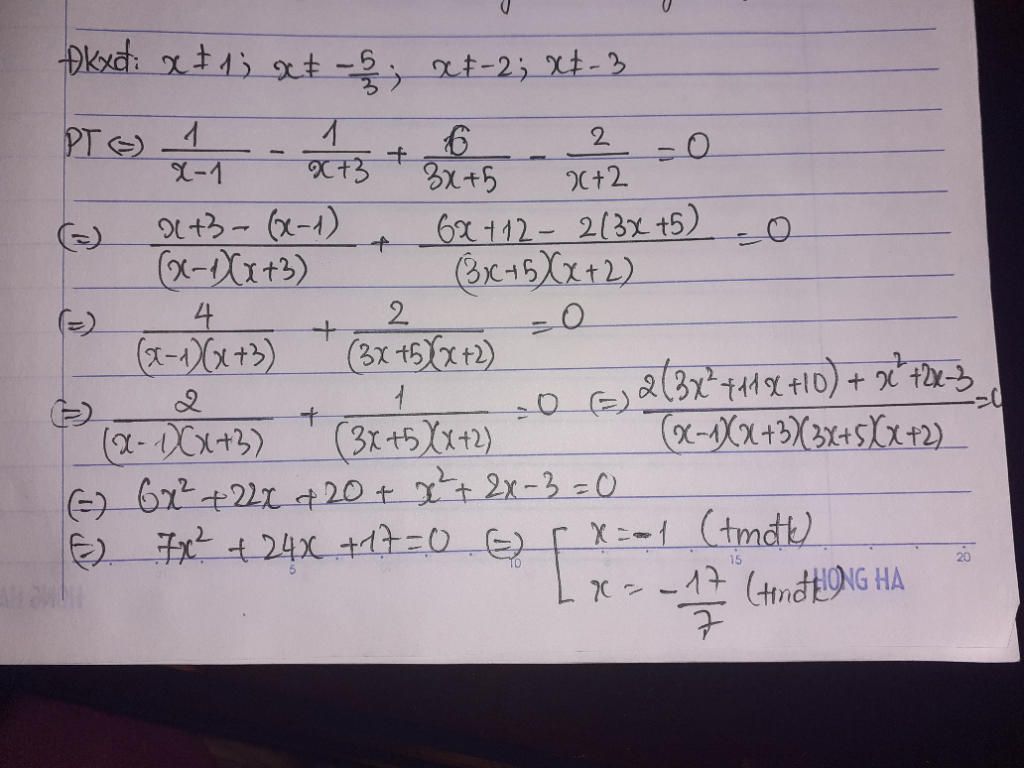 Đkxđ: x ≠ 1; x ≠ -5/3; x ≠ -2; x ≠ -3
PT <=> 1/(x-1) - 1/(x+3) + 6/(3x+5) - 2/(x+2) = 0
(=) (x+3-(x-1))/((x-1)(x+3)) + (6x+12-2(3x+5))/((3x+5)(x+2)) = 0
(=) 4/((x-1)(x+3)) + 2/((3x+5)(x+2)) = 0
(=) 2/((x-1)(x+3)) + 1/((3x+5)(x+2)) = 0 (=) (2(3x²+11x+10)+x²+2x-3)/((x-1)(x+3)(3x+5)(x+2)) = 0
(=) 6x² + 22x + 20 + x² + 2x - 3 = 0
(=) 7x² + 24x + 17 = 0 (=) [ x = -1 (tmđk)
x = -17/7 (tmđk)
5 10 15 20
HONG HA